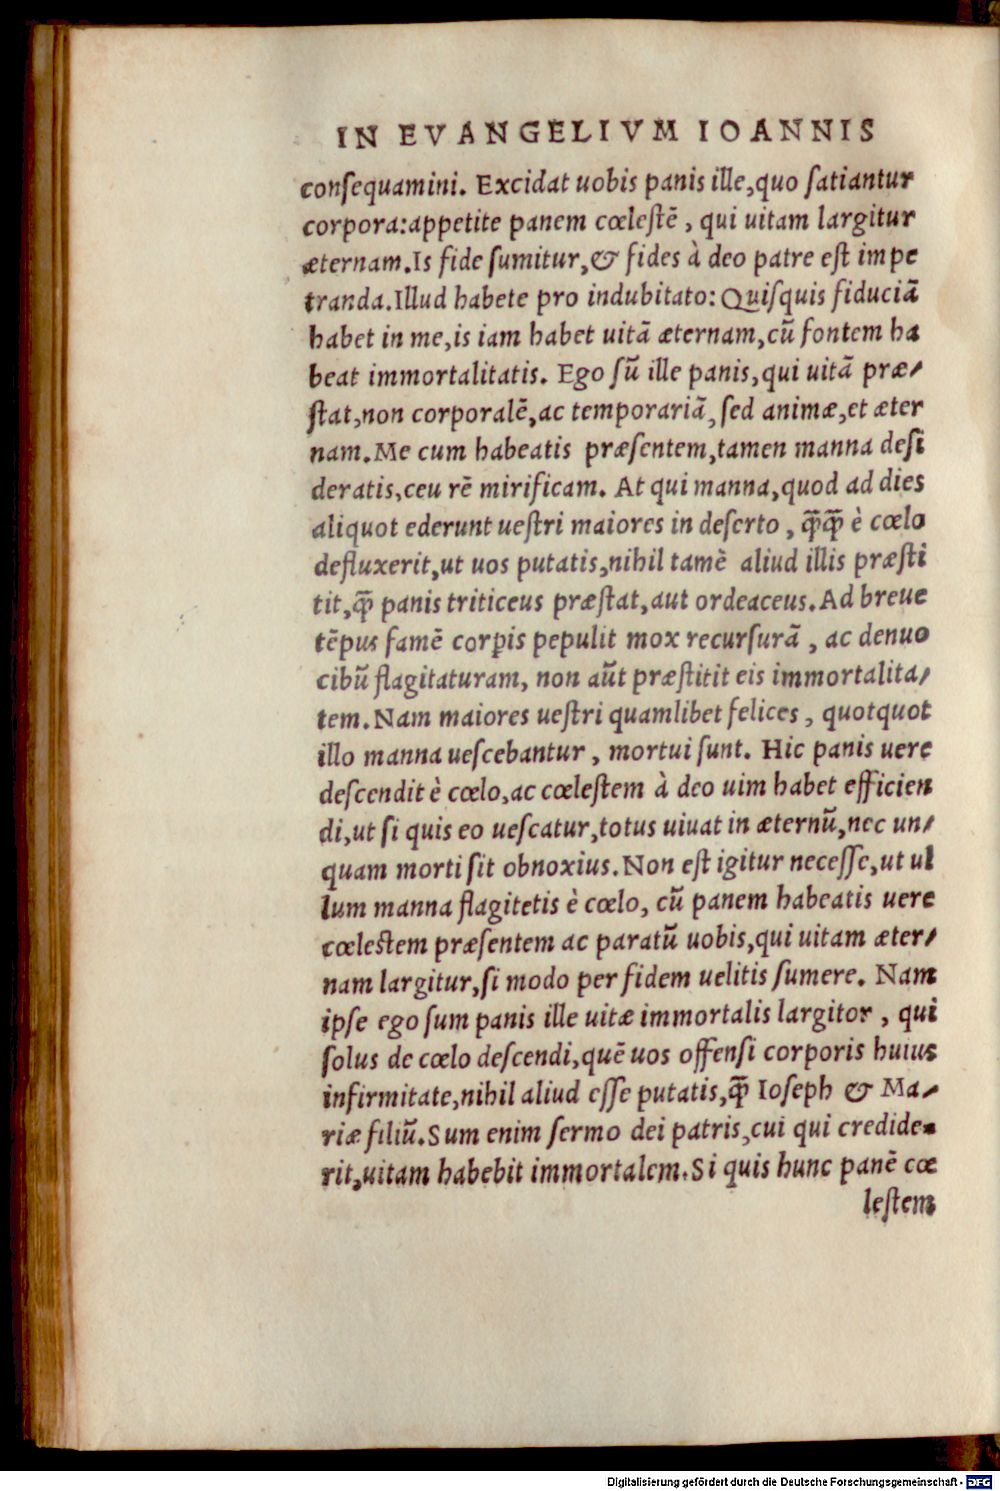 IN EVANGELIVM IOANNIS
conſequamini. Excidat uobis panis ille,quo ſatiantur
corpora:appetite panem cœleſtē, qui uitam largitur
æternam.Is fide ſumitur,& fides à deo patre eſt impe
tranda.Illud habete pro indubitato: Quiſquis fiduciā
habet in me,is iam habet uitā æternam,cū fontem ha
beat immortalitatis. Ego ſū ille panis,qui uitā præ⸗
ſtat,non corporalē,ac temporariā,ſed animæ,et æter
nam.Me cum habeatis præſentem,tamen manna deſi
deratis,ceu rē mirificam. At qui manna,quod ad dies
aliquot ederunt ueſtri maiores in deſerto, q̄q̄ è cœlo
defluxerit,ut uos putatis,nihil tamē aliud illis præſti
tit,q̄ panis triticeus præſtat,aut ordeaceus.Ad breue
tēpus famē corꝑis pepulit mox recurſurā, ac denuo
cibū flagitaturam, non aūt præſtitit eis immortalita⸗
tem.Nam maiores ueſtri quamlibet felices, quotquot
illo manna ueſcebantur, mortui ſunt. Hic panis uere
deſcendit è cœlo,ac cœleſtem à deo uim habet efficien
di,ut ſi quis eo ueſcatur,totus uiuat in æternū,nec un⸗
quam morti ſit obnoxius.Non eſt igitur neceſſe,ut ul
lum manna flagitetis è cœlo, cū panem habeatis uere
cœleſtem præſentem ac paratū uobis,qui uitam æter⸗
nam largitur,ſi modo per fidem uelitis ſumere. Nam
ipſe ego ſum panis ille uitæ immortalis largitor, qui
ſolus de cœlo deſcendi,quē uos offenſi corporis huius
infirmitate,nihil aliud eſſe putatis,q̄ Ioſeph & Ma⸗
riæ filiū.Sum enim ſermo dei patris,cui qui credide⸗
rit,uitam habebit immortalem.Si quis hunc panē cœ
leſtem
Digitalisierung gefördert durch die Deutsche Forschungsgemeinschaft - DFG